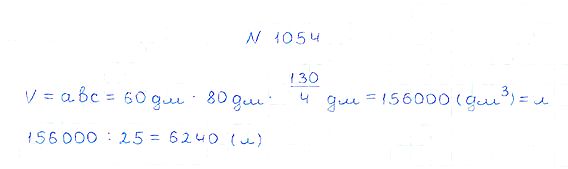 N 1054
V = abc = 60 дм · 80 дм · 130/4 дм = 156000 (дм³) = л
156000 : 25 = 6240 (л)